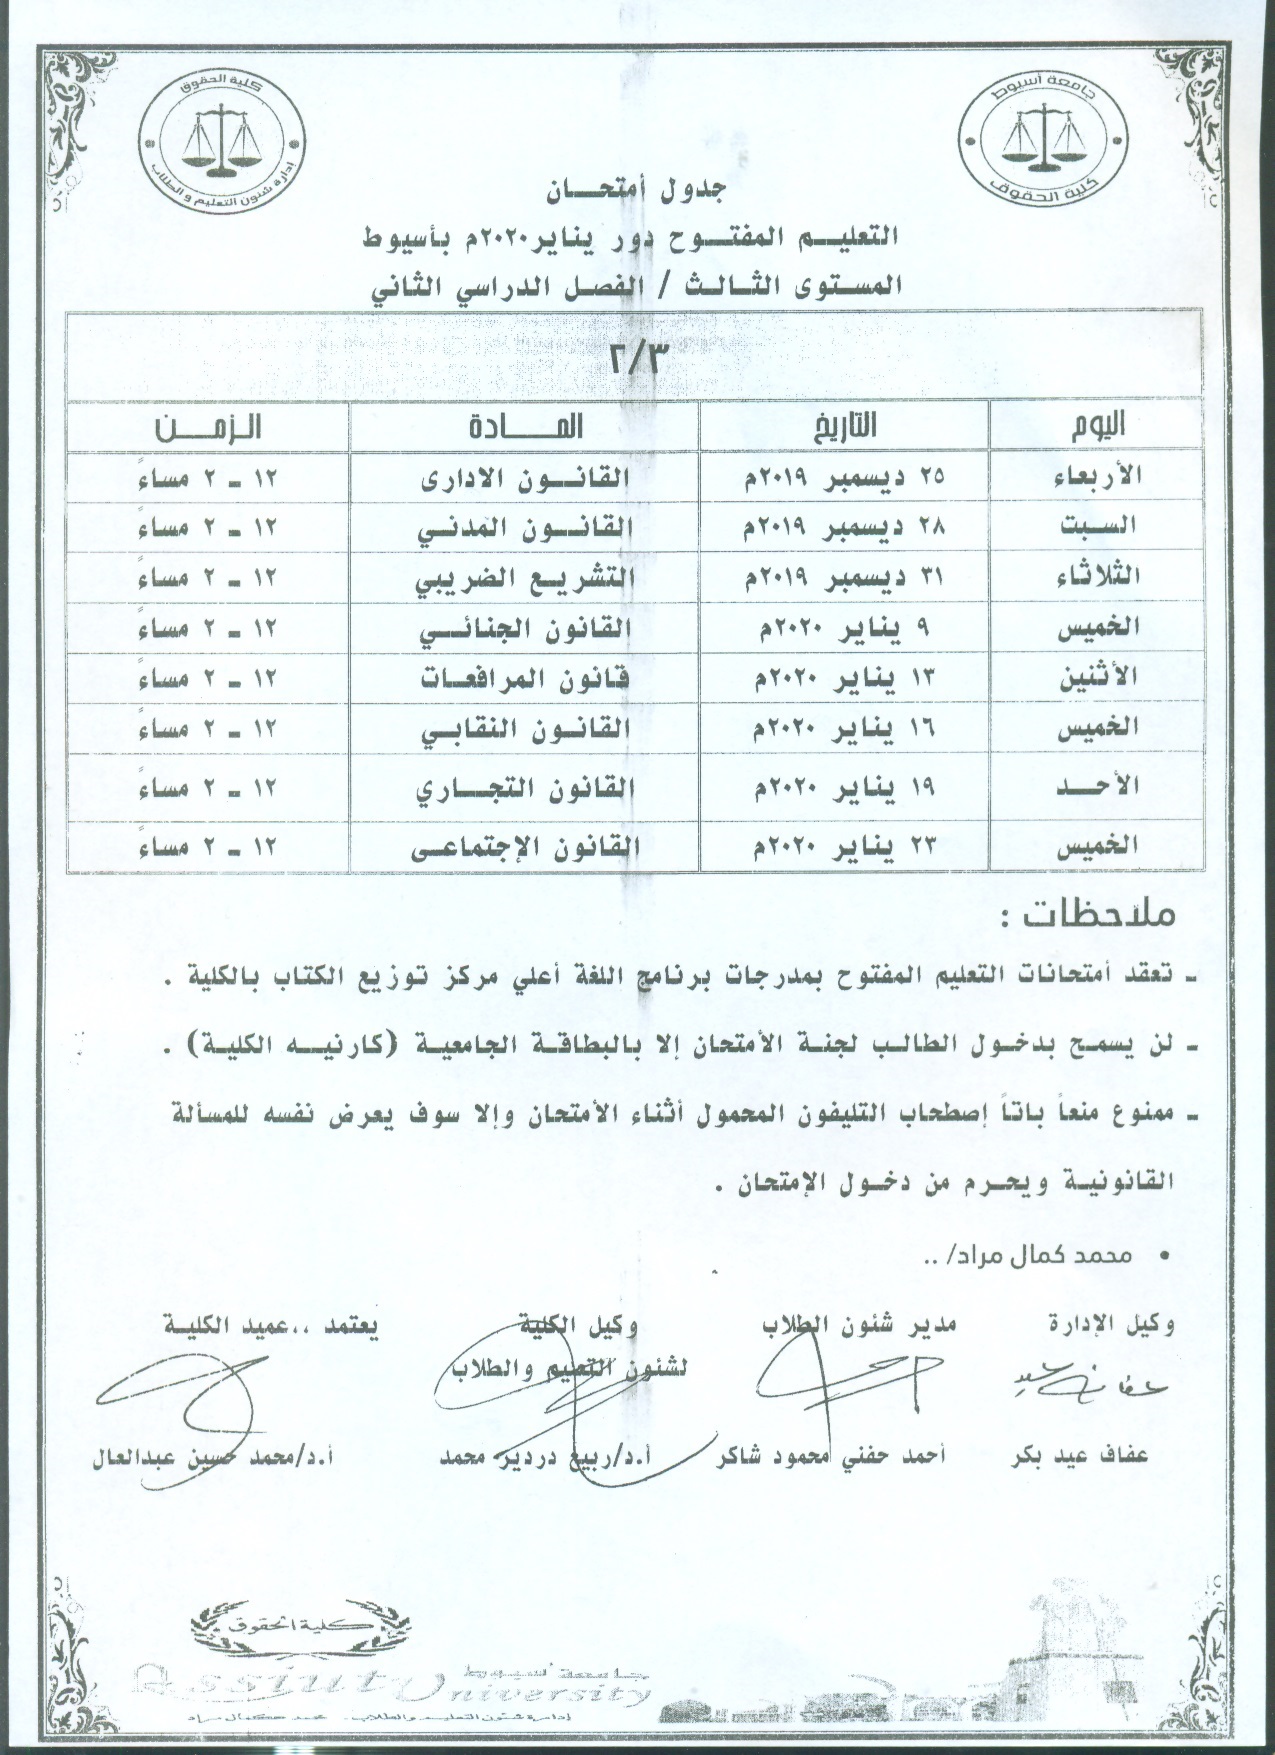 جامعة أسيوط
كلية الحقوق
كلية الحقوق
إدارة شئون التعليم والطلاب
جدول أمتحـــان
التعليـــم المفتـــوح دور يناير٢٠٢٠م بأسيوط
المستوى الثـالـث / الفصل الدراسي الثاني
٢/٣
اليوم التاريخ المــــادة الـزمــــن
الأربعاء ٢٥ ديسمبر ٢٠١٩م القانـــون الادارى ١٢ - ٢ مساءً
السبت ٢٨ ديسمبر ٢٠١٩م القانـــون المدنـي ١٢ - ٢ مساءً
الثلاثاء ٣١ ديسمبر ٢٠١٩م التشريـع الضريبي ١٢ - ٢ مساءً
الخميس ٩ يناير ٢٠٢٠م القانون الجنائــي ١٢ - ٢ مساءً
الأثنين ١٣ يناير ٢٠٢٠م قانون المرافعات ١٢ - ٢ مساءً
الخميس ١٦ يناير ٢٠٢٠م القانـون النقابـي ١٢ - ٢ مساءً
الأحـــد ١٩ يناير ٢٠٢٠م القانون التجـــاري ١٢ - ٢ مساءً
الخميس ٢٣ يناير ٢٠٢٠م القانون الإجتماعـى ١٢ - ٢ مساءً
ملاحظات :
- تعقد أمتحانات التعليم المفتوح بمدرجات برنامج اللغة أعلي مركز توزيع الكتاب بالكلية .
- لن يسمـح بدخـول الطالـب لجنـة الأمتحـان إلا بالبطاقـة الجامعيـة (كارنيـه الكليـة) .
- ممنوع منعاً باتاً إصطحاب التليفون المحمول أثناء الأمتحان وإلا سوف يعرض نفسه للمسألة
القانونيـة ويحـرم من دخـول الإمتحـان .
• محمد كمال مراد/ ..
وكيل الإدارة مدير شئون الطلاب وكيل الكلية يعتمد ..عميد الكليـة
لشئون التعليم والطلاب
عفاف عيد بكر أحمد حفني محمود شاكر أ.د/ربيع دردير محمد أ.د/محمد حسين عبدالعال
كلية الحقوق
جامعة أسيوط
Assiut University
إدارة شئون التعليم والطلاب. محمد كمال مراد